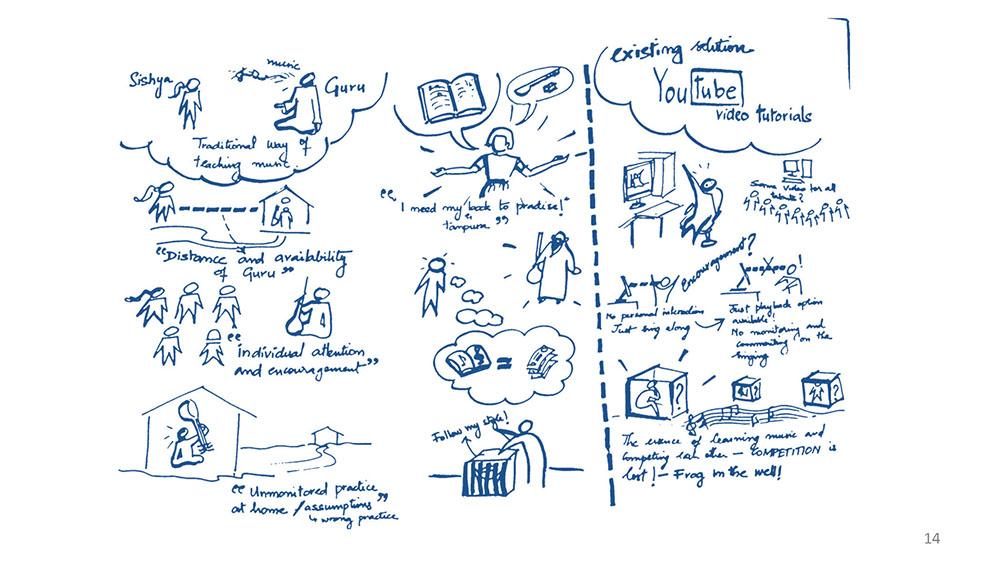 Sishya
music
Guru
Traditional way of
teaching music.
"Distance and availability
of Guru"
"individual attention
and encouragement"
"Unmonitored practice
at home / assumptions"
↳ wrong practice
"I need my book to practise!"
" tanpura "
Follow my style!
existing solution
YouTube
video tutorials
Same video for all
talents?
Encouragement?
!
No personal interaction
Just sing along
Just playback option
available!
No monitoring and
commenting on the
singing
?
?
?
The essence of learning music and
competing each other — COMPETITION is
lost! – Frog in the well!
14